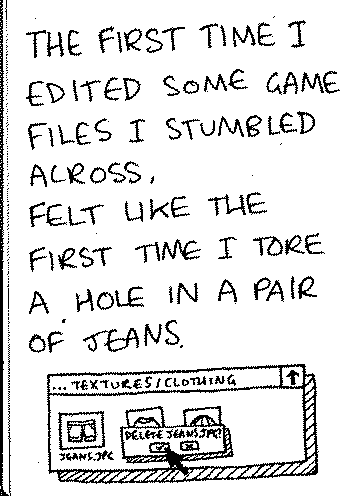 THE FIRST TIME I
EDITED SOME GAME
FILES I STUMBLED
ACROSS,
FELT LIKE THE
FIRST TIME I TORE
A HOLE IN A PAIR
OF JEANS.
... TEXTURES/CLOTHING
DELETE JEANS.JPG?
JEANS.JPG